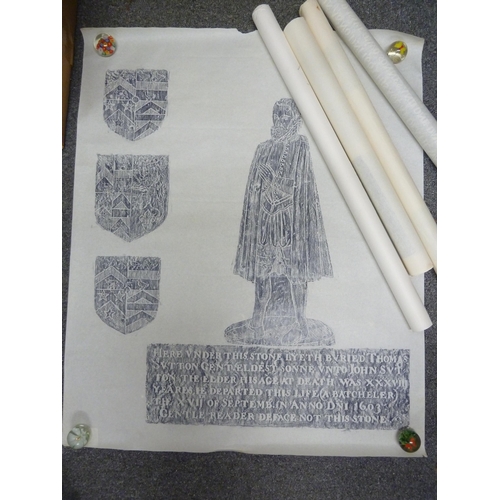 HERE VNDER THIS STONE LYETH BVRIED THOMAS
SVTTON GENT ELDEST SONNE VNTO IOHN SVT
TON THE ELDER HIS AGE AT DEATH WAS XXXVIII
YEARES HE DEPARTED THIS LIFE (A BATCHELER)
THE XVII OF SEPTEMB: IN ANNO DNI 1603
GENTLE READER DEFACE NOT THIS STONE